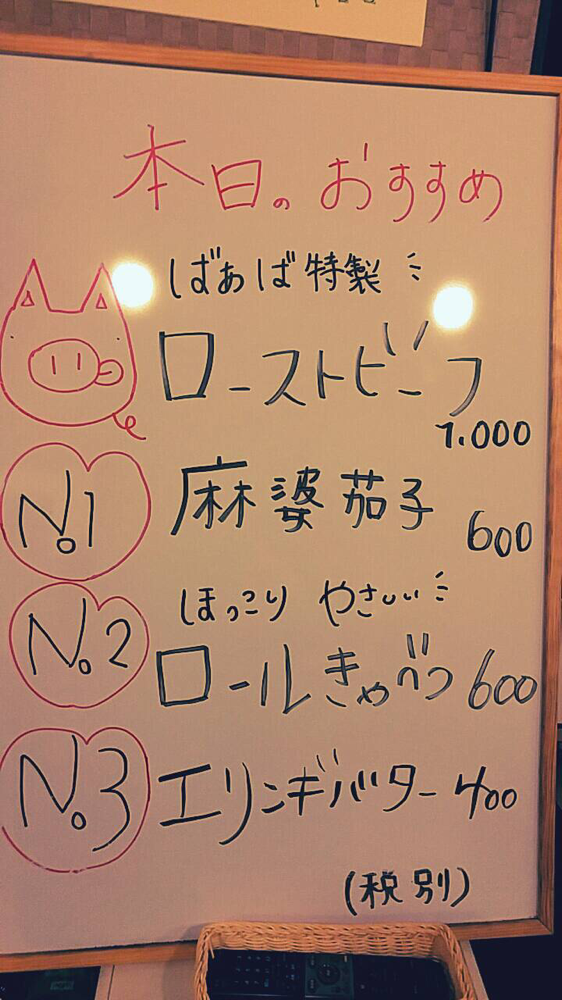 本日のおすすめ
ばぁば特製
ローストビーフ
1.000
No.1 麻婆茄子 600
ほっこり やさしい
No.2 ロールきゃべつ 600
No.3 エリンギバター 400
(税別)